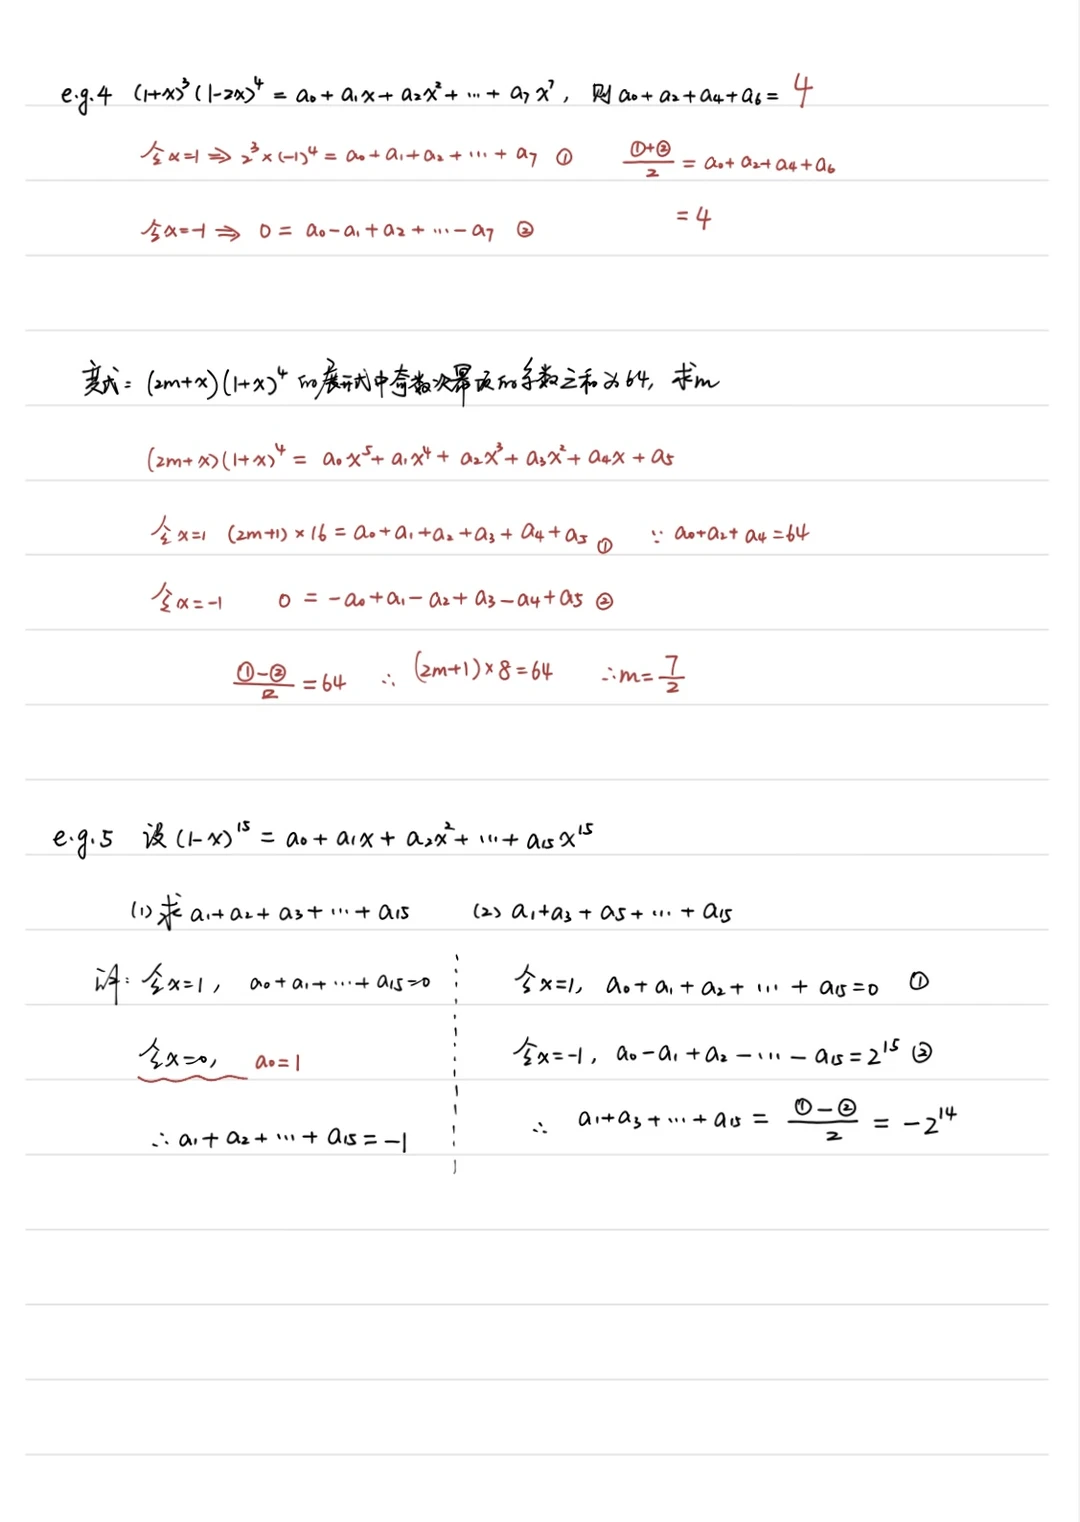 e.g.4 (1+x)³(1-2x)⁴ = a₀ + a₁x + a₂x² + ... + a₇x⁷, 则 a₀+a₂+a₄+a₆ = 4
令x=1 ⇒ 2³×(-1)⁴ = a₀+a₁+a₂+...+a₇ ① (①+②)/2 = a₀+a₂+a₄+a₆
= 4
令x=-1 ⇒ 0 = a₀-a₁+a₂+...-a₇ ②
变式: (2m+x)(1+x)⁴ 的展开式中奇数次幂项的系数之和为64, 求m
(2m+x)(1+x)⁴ = a₀x⁵+a₁x⁴+a₂x³+a₃x²+a₄x+a₅
令x=1 (2m+1)×16 = a₀+a₁+a₂+a₃+a₄+a₅ ① ∵ a₀+a₂+a₄=64
令x=-1 0 = -a₀+a₁-a₂+a₃-a₄+a₅ ②
(①-②)/2 = 64 ∴ (2m+1)×8=64 ∴m=7/2
e.g.5 设(1-x)¹⁵ = a₀+a₁x+a₂x²+...+a₁₅x¹⁵
(1)求a₁+a₂+a₃+...+a₁₅ (2) a₁+a₃+a₅+...+a₁₅
解: 令x=1, a₀+a₁+...+a₁₅=0 令x=1, a₀+a₁+a₂+...+a₁₅=0 ①
令x=0, a₀=1 令x=-1, a₀-a₁+a₂-...-a₁₅=2¹⁵ ②
∴a₁+a₂+...+a₁₅=-1 ∴ a₁+a₃+...+a₁₅ = (①-②)/2 = -2¹⁴